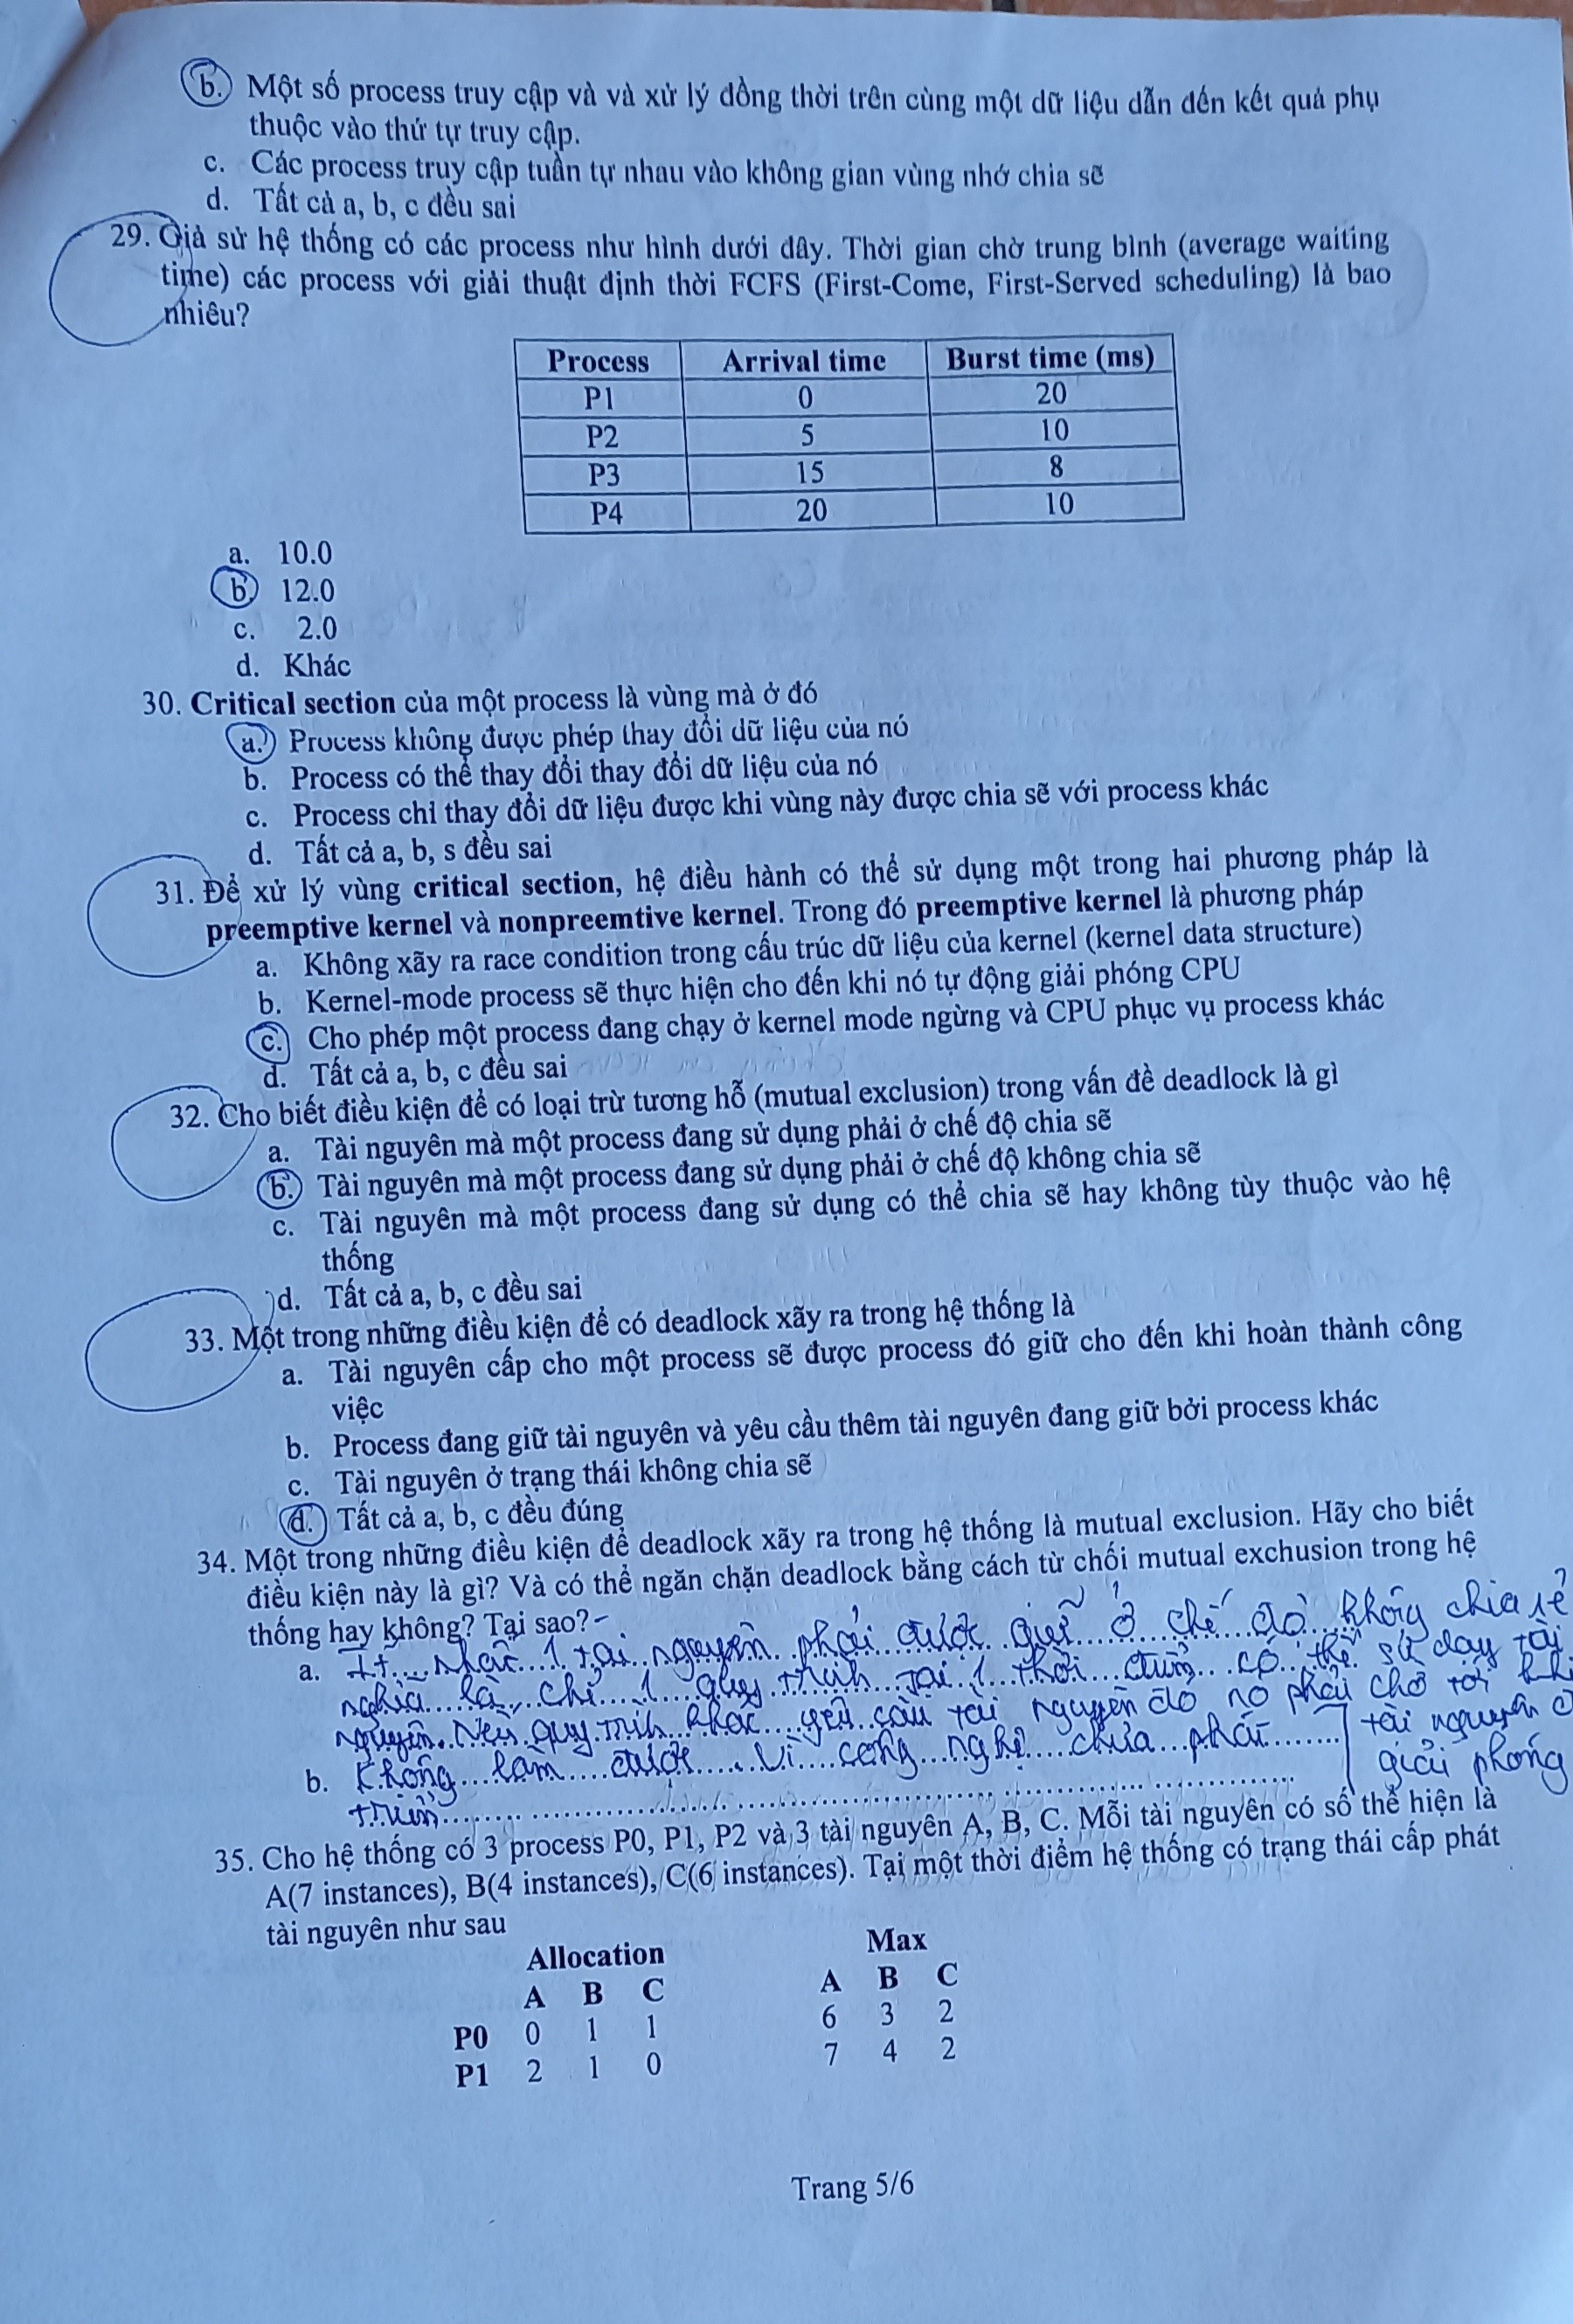 b. Một số process truy cập và và xử lý đồng thời trên cùng một dữ liệu dẫn đến kết quả phụ
thuộc vào thứ tự truy cập.
c. Các process truy cập tuần tự nhau vào không gian vùng nhớ chia sẽ
d. Tất cả a, b, c đều sai
29. Giả sử hệ thống có các process như hình dưới đây. Thời gian chờ trung bình (average waiting
time) các process với giải thuật định thời FCFS (First-Come, First-Served scheduling) là bao
nhiêu?
Process Arrival time Burst time (ms)
P1 0 20
P2 5 10
P3 15 8
P4 20 10
a. 10.0
b. 12.0
c. 2.0
d. Khác
30. Critical section của một process là vùng mà ở đó
a. Process không được phép thay đổi dữ liệu của nó
b. Process có thể thay đổi thay đổi dữ liệu của nó
c. Process chỉ thay đổi dữ liệu được khi vùng này được chia sẽ với process khác
d. Tất cả a, b, s đều sai
31. Để xử lý vùng critical section, hệ điều hành có thể sử dụng một trong hai phương pháp là
preemptive kernel và nonpreemtive kernel. Trong đó preemptive kernel là phương pháp
a. Không xãy ra race condition trong cấu trúc dữ liệu của kernel (kernel data structure)
b. Kernel-mode process sẽ thực hiện cho đến khi nó tự động giải phóng CPU
c. Cho phép một process đang chạy ở kernel mode ngừng và CPU phục vụ process khác
d. Tất cả a, b, c đều sai
32. Cho biết điều kiện để có loại trừ tương hỗ (mutual exclusion) trong vấn đề deadlock là gì
a. Tài nguyên mà một process đang sử dụng phải ở chế độ chia sẽ
b. Tài nguyên mà một process đang sử dụng phải ở chế độ không chia sẽ
c. Tài nguyên mà một process đang sử dụng có thể chia sẽ hay không tùy thuộc vào hệ
thống
d. Tất cả a, b, c đều sai
33. Một trong những điều kiện để có deadlock xãy ra trong hệ thống là
a. Tài nguyên cấp cho một process sẽ được process đó giữ cho đến khi hoàn thành công
việc
b. Process đang giữ tài nguyên và yêu cầu thêm tài nguyên đang giữ bởi process khác
c. Tài nguyên ở trạng thái không chia sẽ
d. Tất cả a, b, c đều đúng
34. Một trong những điều kiện để deadlock xãy ra trong hệ thống là mutual exclusion. Hãy cho biết
điều kiện này là gì? Và có thể ngăn chặn deadlock bằng cách từ chối mutual exchusion trong hệ
thống hay không? Tại sao?
a. Ít nhất 1 tài nguyên phải được giữ ở chế độ không chia sẻ
nghĩa là, chỉ 1 quy trình tại 1 thời điểm có thể sử dụng tài
nguyên. Nếu quy trình khác yêu cầu tài nguyên đó nó phải chờ tới khi
tài nguyên
giải phóng
b. Không làm được vì công nghệ chưa phát
triển
35. Cho hệ thống có 3 process P0, P1, P2 và 3 tài nguyên A, B, C. Mỗi tài nguyên có số thể hiện là
A(7 instances), B(4 instances), C(6 instances). Tại một thời điểm hệ thống có trạng thái cấp phát
tài nguyên như sau
Allocation Max
A B C A B C
P0 0 1 1 6 3 2
P1 2 1 0 7 4 2
Trang 5/6